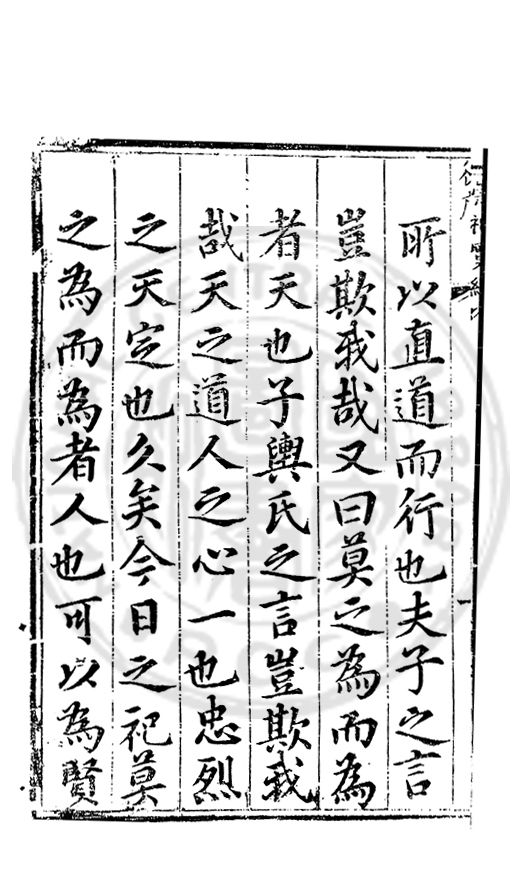 所以直道而行也夫子之言
豈欺我哉又曰莫之為而為
者天也子輿氏之言豈欺我
哉天之道人之心一也忠烈
之天定也久矣今日之祀莫
之為而為者人也可以為賢